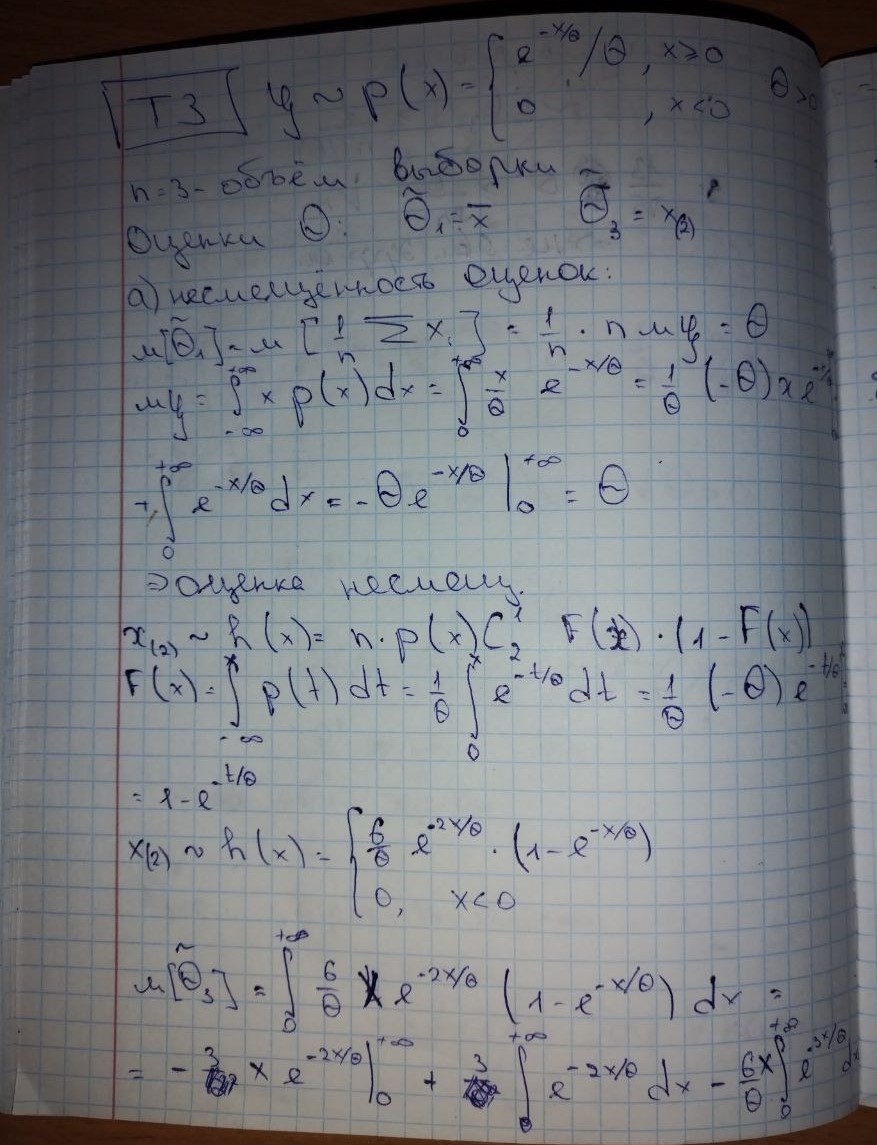 T3 ξ ~ p(x) = { e^{-x/θ}/θ, x≥0
0, x<0 θ>0
n=3 - объём выборки
Оценки θ: θ̃₁ = x̄ θ̃₃ = x₍₂₎
а) несмещённость оценок:
м[θ̃₁] = м [1/n Σ xᵢ] = 1/n · n мξ = θ
мξ = ∫_{-∞}^{+∞} x p(x) dx = ∫_0^{+∞} x/θ e^{-x/θ} = 1/θ (-θ) x e^{-x/θ}
+ ∫_0^{+∞} e^{-x/θ} dx = -θ e^{-x/θ} |_0^{+∞} = θ
⇒ оценка несмещ.
x₍₂₎ ~ h(x) = n · p(x) C_2^1 F(x) · (1 - F(x))
F(x) = ∫_{-∞}^x p(t) dt = 1/θ ∫_0^x e^{-t/θ} dt = 1/θ (-θ) e^{-t/θ}
= 1 - e^{-t/θ}
x₍₂₎ ~ h(x) = { 6/θ e^{-2x/θ} · (1 - e^{-x/θ})
0, x<0
м[θ̃₃] = ∫_0^{+∞} 6/θ x e^{-2x/θ} (1 - e^{-x/θ}) dx =
= - 3 x e^{-2x/θ} |_0^{+∞} + 3 ∫_0^{+∞} e^{-2x/θ} dx - 6/θ x ∫_0^{+∞} e^{-3x/θ} dx